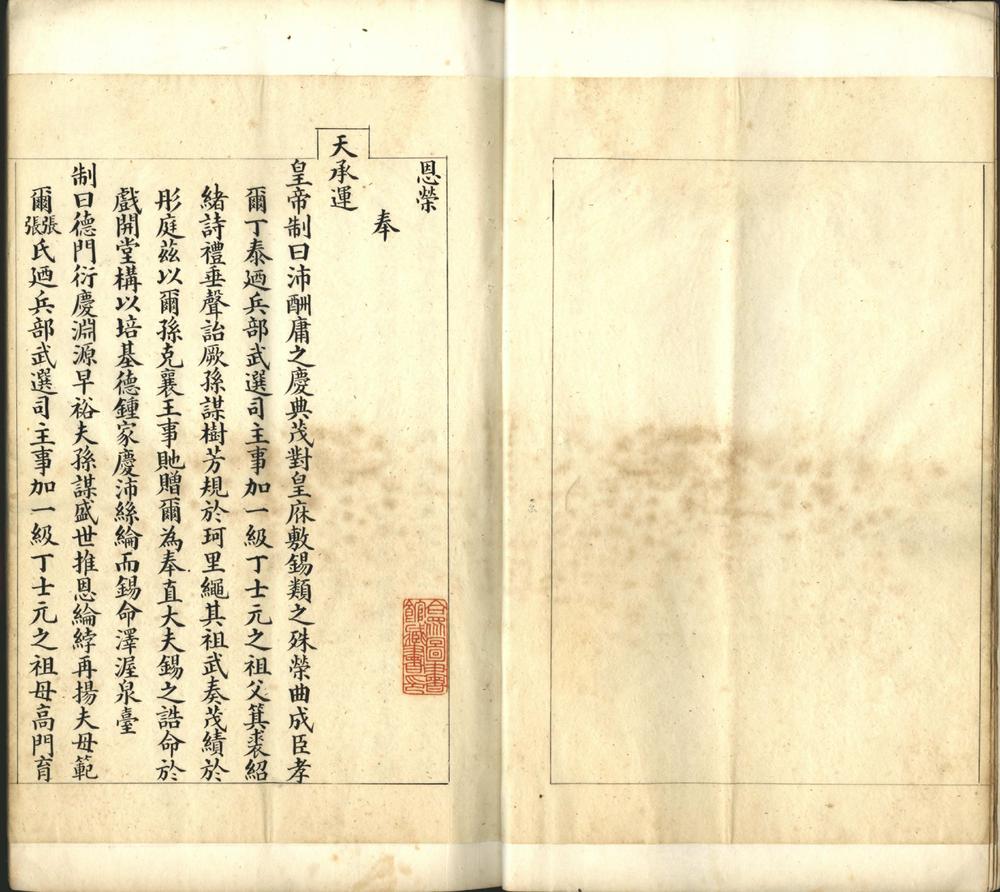 恩榮
奉
天承運
皇帝制曰沛酬庸之慶典茂對皇庥敷錫類之殊榮曲成臣孝
爾丁泰廼兵部武選司主事加一級丁士元之祖父箕裘紹
緒詩禮垂聲詒厥孫謀樹芳規於珂里繩其祖武奏茂績於
彤庭茲以爾孫克襄王事貤贈爾為奉直大夫錫之誥命於
戲開堂構以培基德鍾家慶沛絲綸而錫命澤渥泉臺
制曰德門衍慶淵源早裕夫孫謀盛世推恩綸綍再揚夫母範
爾張張氏廼兵部武選司主事加一級丁士元之祖母高門育
合眾圖書館藏書印